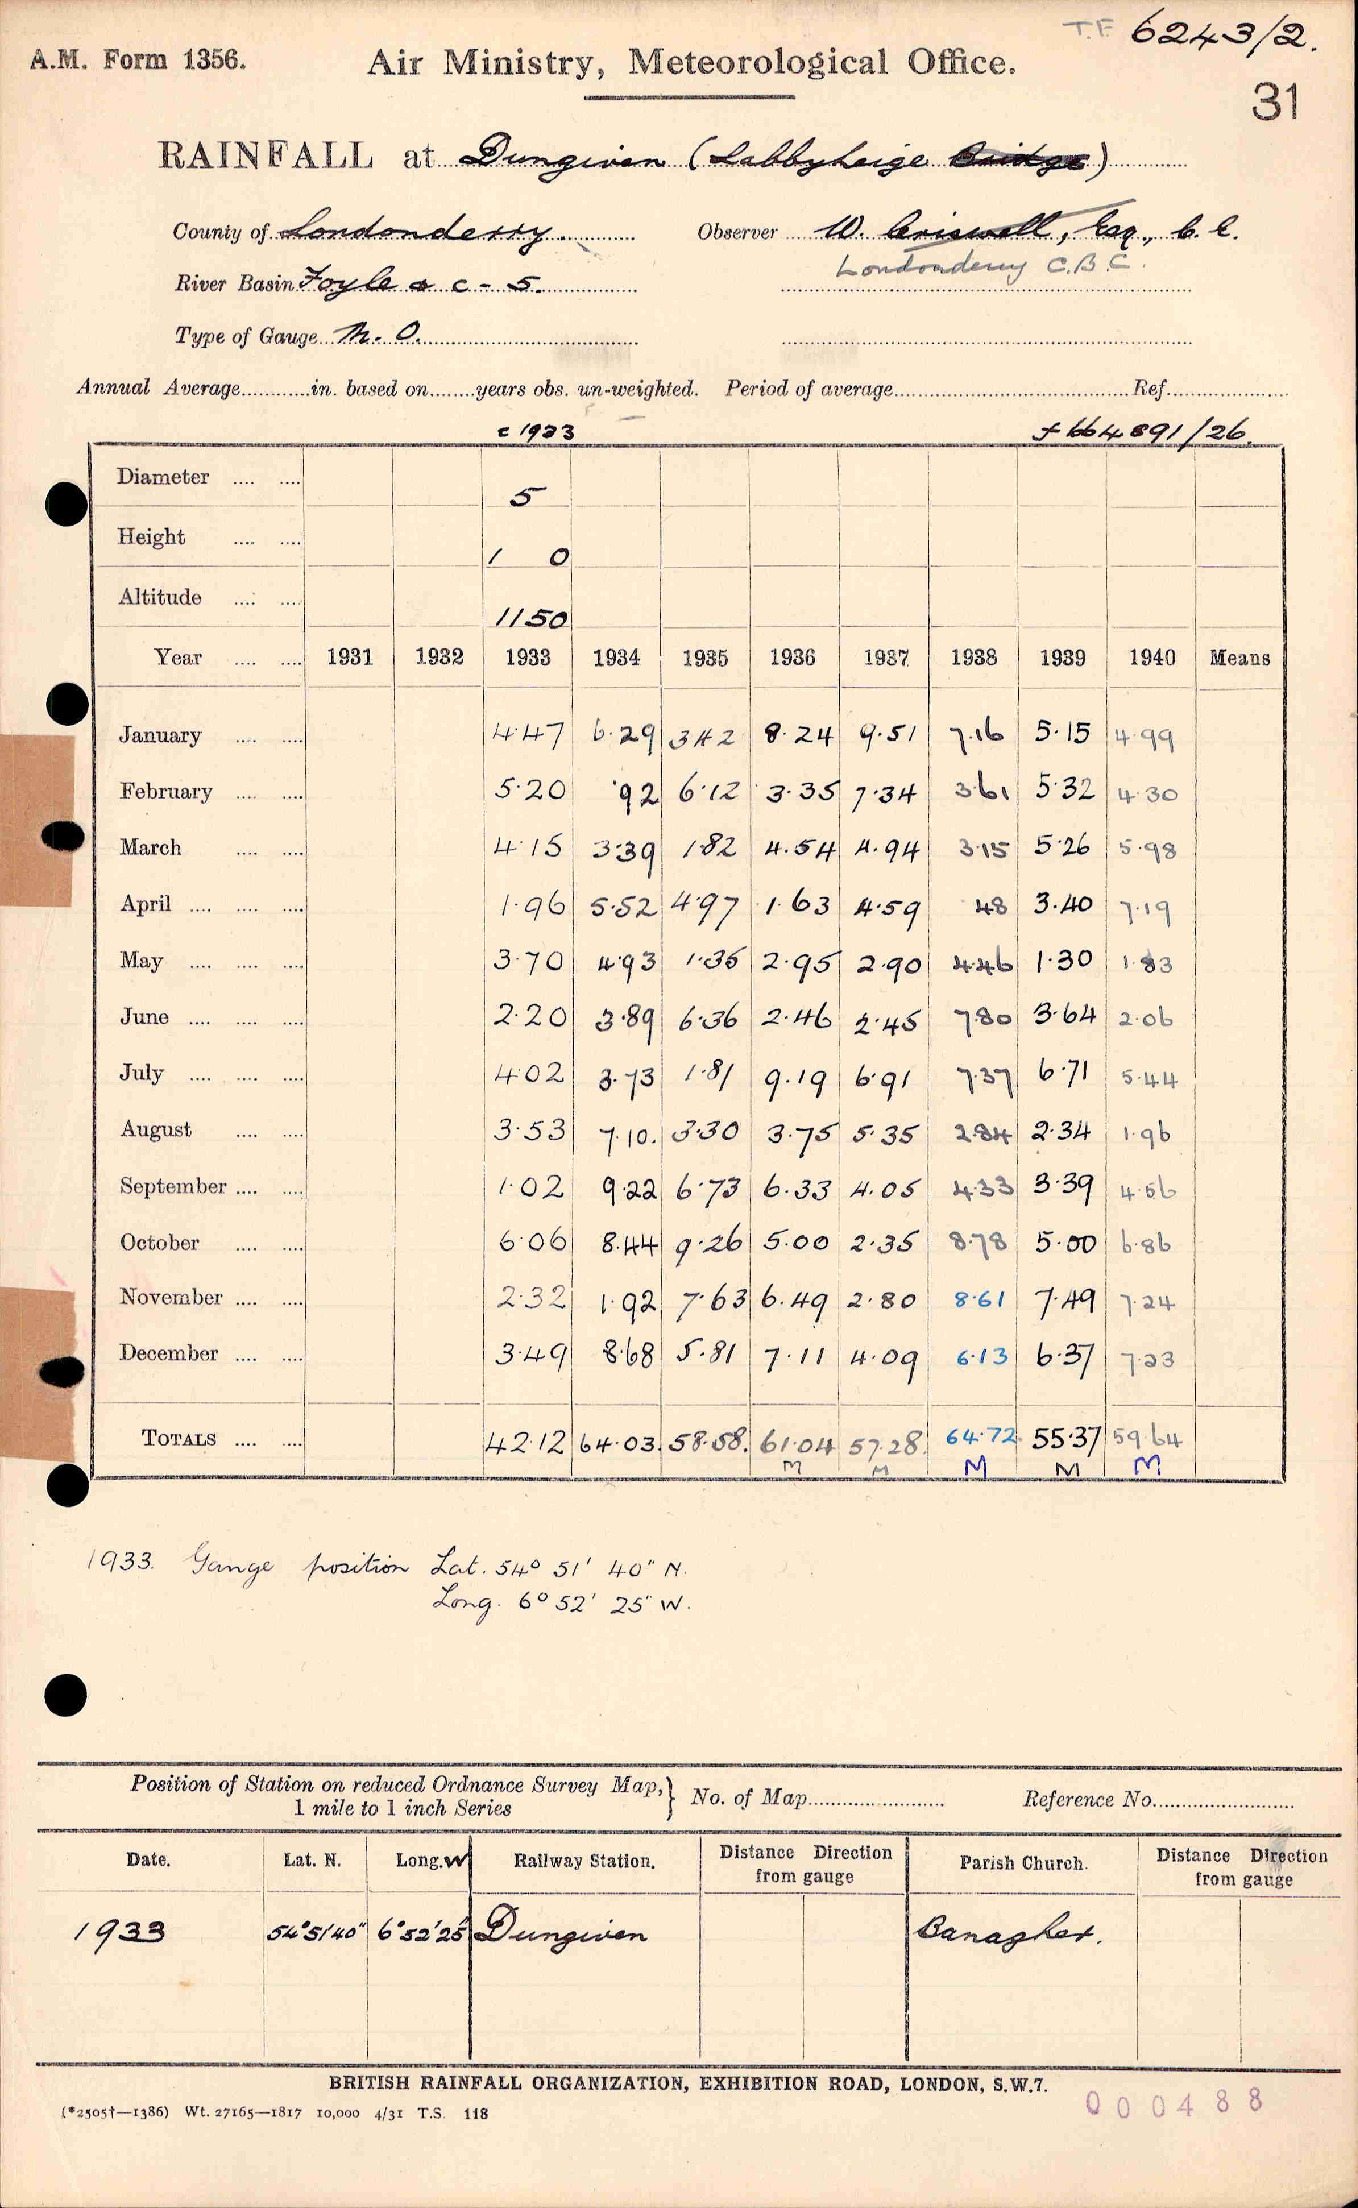 T.F. 6243/2.
A.M. Form 1356. Air Ministry, Meteorological Office.
31
RAINFALL at Dungiven (Labbyheige Bridge)
County of Londonderry. Observer W. Criswell, Esq., C.E.
Londonderry C.B.C.
River Basin Foyle & c - 5.
Type of Gauge M.O.
Annual Average in. based on years obs. un-weighted. Period of average Ref.
c 1933 + 664891/26.
Diameter 5
Height 1 0
Altitude 1150
Year 1931 1932 1933 1934 1935 1936 1937 1938 1939 1940 Means
January 4.47 6.29 3.42 8.24 9.51 7.16 5.15 4.99
February 5.20 .92 6.12 3.35 7.34 3.61 5.32 4.30
March 4.15 3.39 1.82 4.54 4.94 3.15 5.26 5.98
April 1.96 5.52 4.97 1.63 4.59 48 3.40 7.19
May 3.70 4.93 1.35 2.95 2.90 4.46 1.30 1.83
June 2.20 3.89 6.36 2.46 2.45 7.80 3.64 2.06
July 4.02 3.73 1.81 9.19 6.91 7.37 6.71 5.44
August 3.53 7.10. 3.30 3.75 5.35 2.84 2.34 1.96
September 1.02 9.22 6.73 6.33 4.05 4.33 3.39 4.56
October 6.06 8.44 9.26 5.00 2.35 8.78 5.00 6.86
November 2.32 1.92 7.63 6.49 2.80 8.61 7.49 7.24
December 3.49 8.68 5.81 7.11 4.09 6.13 6.37 7.23
TOTALS 42.12 64.03. 58.58. 61.04 57.28. 64.72 55.37 59.64
M M M M M
1933. Gauge position Lat. 54° 51' 40" N.
Long. 6° 52' 25" W.
Position of Station on reduced Ordnance Survey Map, } No. of Map Reference No.
1 mile to 1 inch Series
Date. Lat. N. Long. W Railway Station. Distance Direction from gauge Parish Church. Distance Direction from gauge
1933 54°51'40" 6°52'25" Dungiven Banagher.
BRITISH RAINFALL ORGANIZATION, EXHIBITION ROAD, LONDON, S.W.7.
(*2505†—1386) Wt. 27165—1817 10,000 4/31 T.S. 118
000488